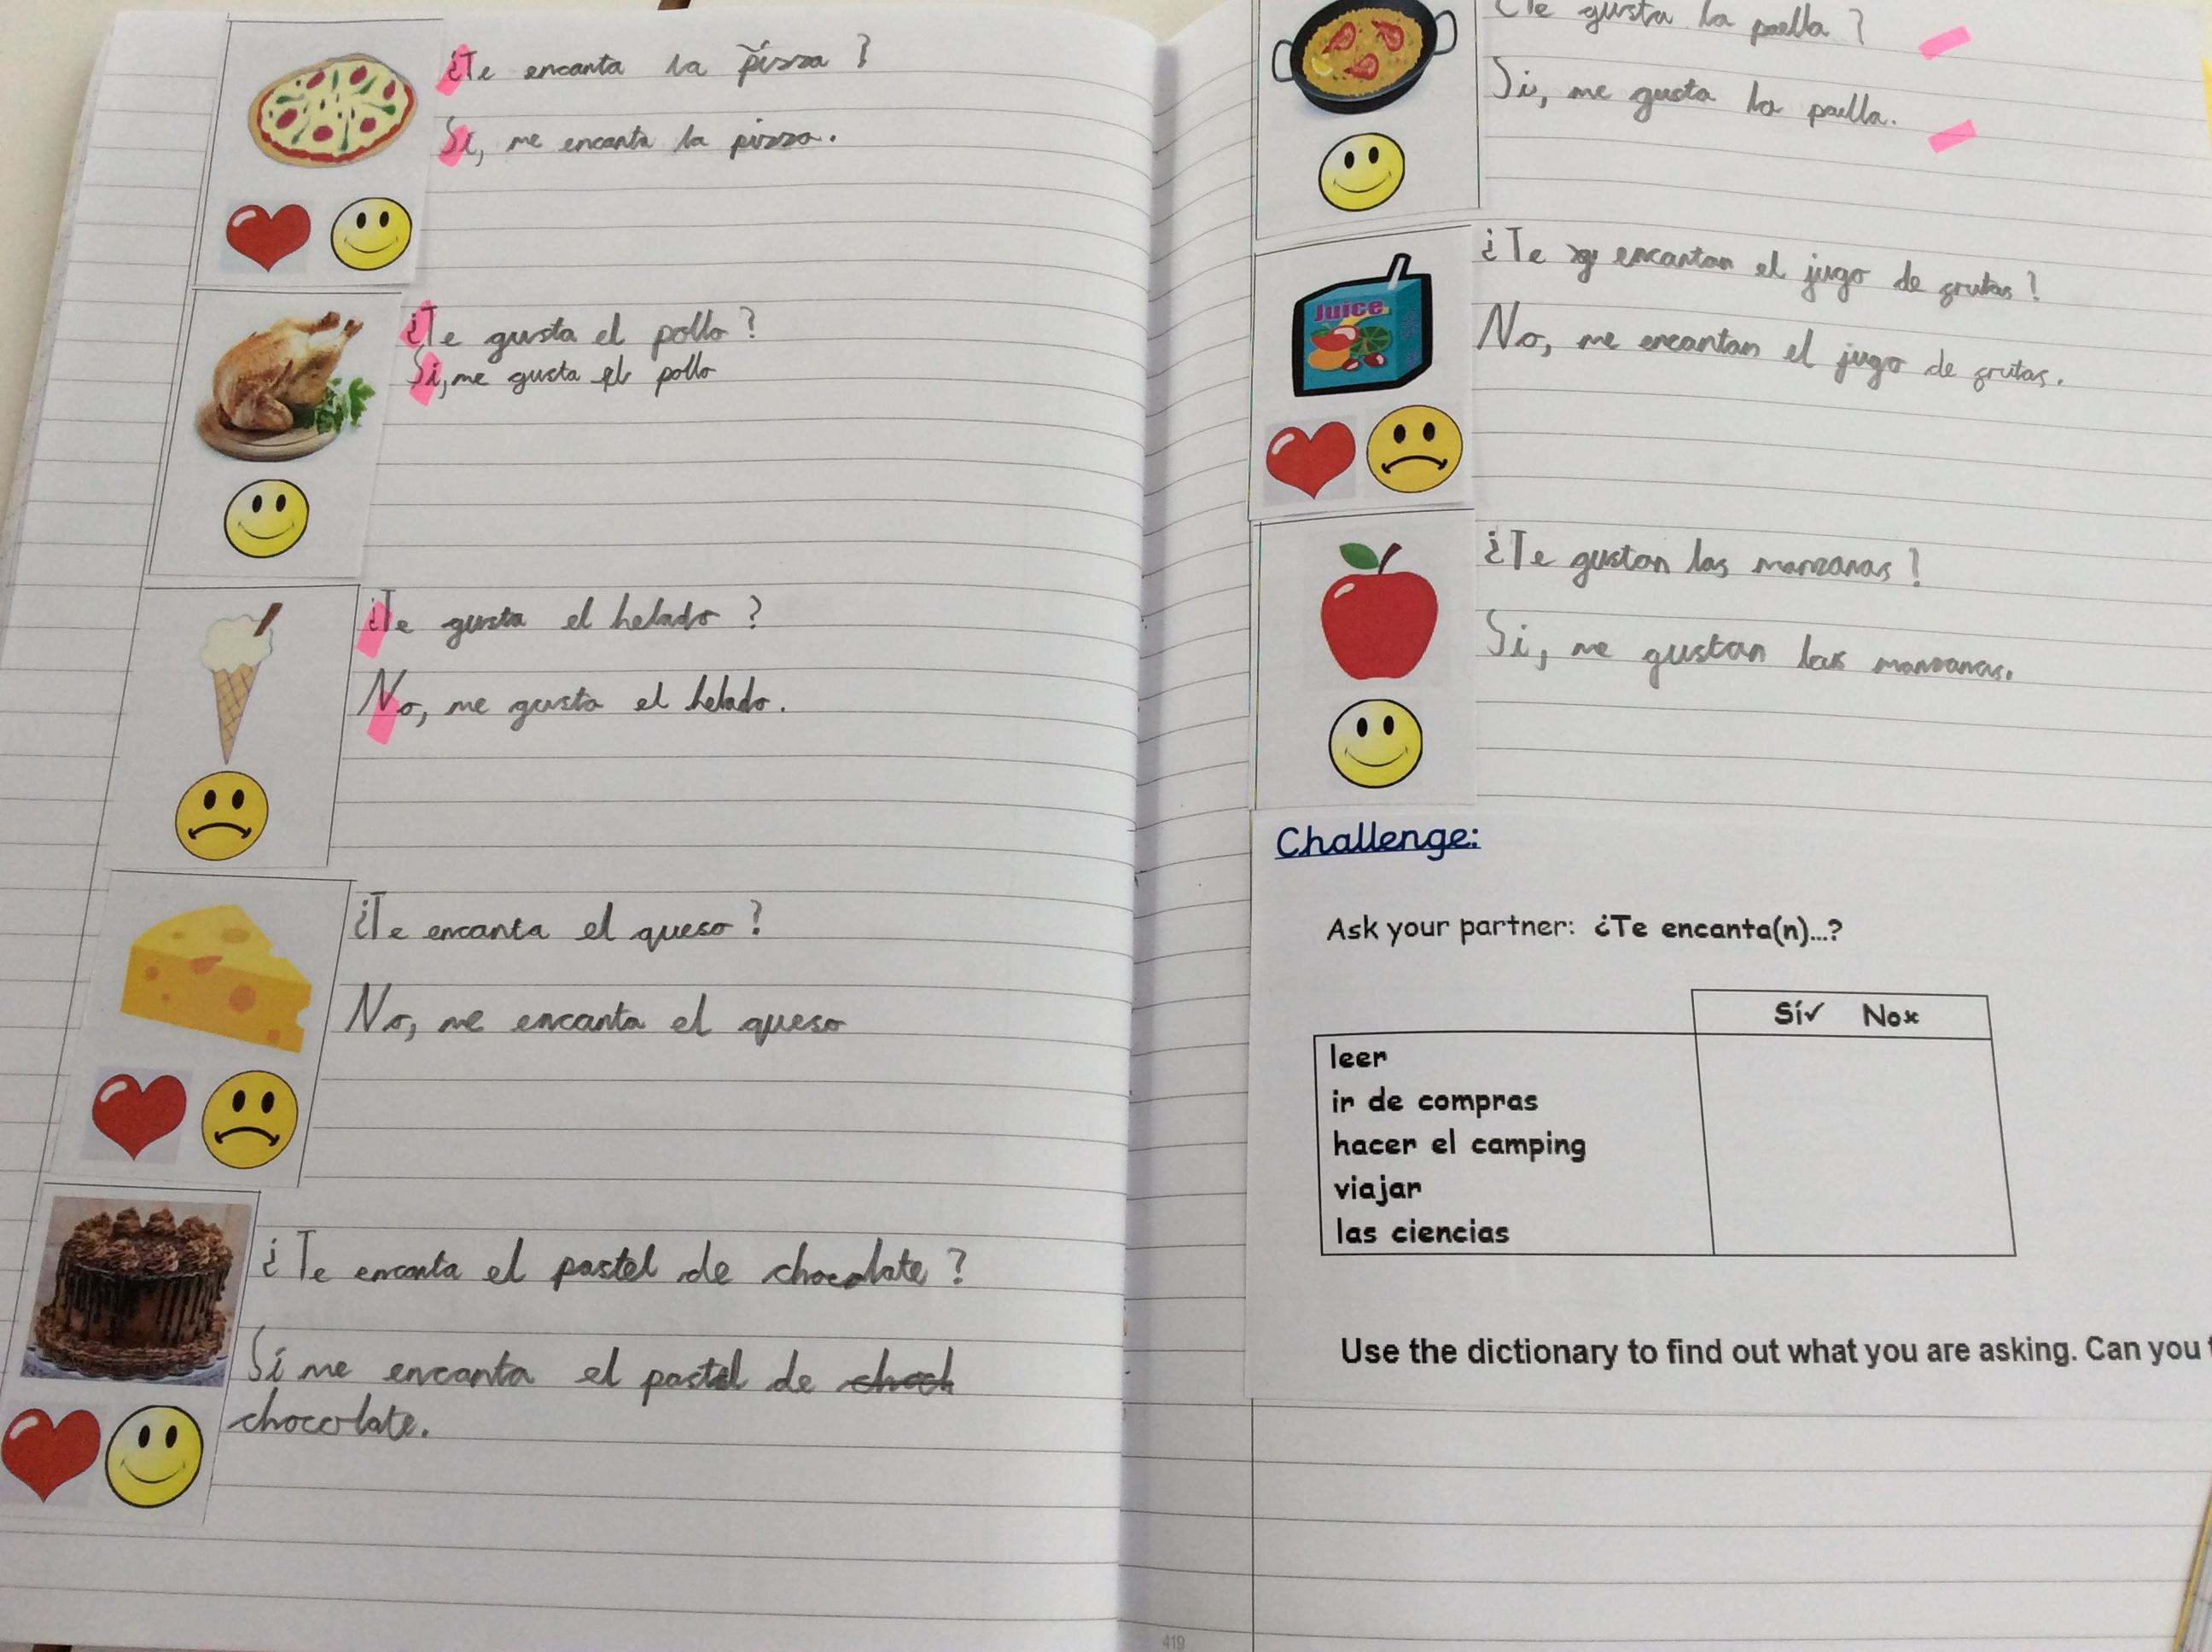 ¿Te encanta la pizza?
Si, me encanta la pizza.
¿Te gusta el pollo?
Si, me gusta el pollo
¿Te gusta el helado?
No, me gusta el helado.
¿Te encanta el queso?
No, me encanta el queso
¿Te encanta el pastel de chocolate?
Sí me encanta el pastel de choch
chocolate.
¿Te gusta la paella?
Si, me gusta la paella.
Juice
¿Te encantan el jugo de frutas?
No, me encantan el jugo de frutas.
¿Te gustan las manzanas?
Si, me gustan las manzanas.
Challenge:
Ask your partner: ¿Te encanta(n)...?
Sí✓ No×
leer
ir de compras
hacer el camping
viajar
las ciencias
Use the dictionary to find out what you are asking. Can you
419